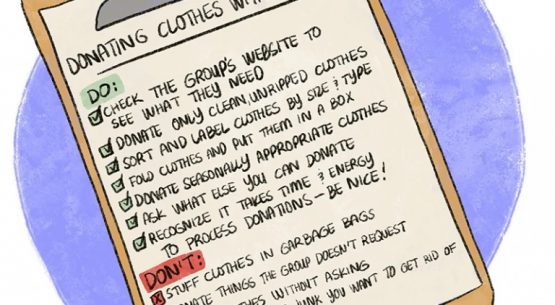 DONATING CLOTHES
DO:
CHECK THE GROUP'S WEBSITE TO
SEE WHAT THEY NEED
DONATE ONLY CLEAN, UNRIPPED CLOTHES
SORT AND LABEL CLOTHES BY SIZE & TYPE
FOLD CLOTHES AND PUT THEM IN A BOX
DONATE SEASONALLY APPROPRIATE CLOTHES
ASK WHAT ELSE YOU CAN DONATE
RECOGNIZE IT TAKES TIME & ENERGY
TO PROCESS DONATIONS – BE NICE!
DON'T:
STUFF CLOTHES IN GARBAGE BAGS
THINGS THE GROUP DOESN'T REQUEST
WITHOUT ASKING
YOU WANT TO GET RID OF